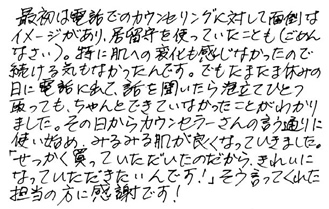 最初は電話でのカウンセリングに対して面倒な
イメージがあり、居留守を使っていたことも(ごめん
なさい)。特に肌への変化も感じなかったので
続ける気もなかったんです。でもたまたま休みの
日に電話に出て、話を聞いたら泡立てひとつ
取っても、ちゃんとできていなかったことがわかり
ました。その日からカウンセラーさんの言う通りに
使い始め、みるみる肌が良くなっていきました。
「せっかく買っていただいたのだから、きれいに
なっていただきたいんです!」そう言ってくれた
担当の方に感謝です!